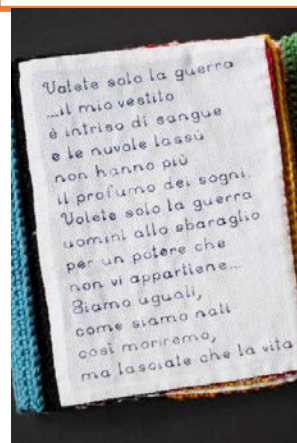 Volete solo la guerra
....il mio vestito
è intriso di sangue
e le nuvole lassù
non hanno più
il profumo dei sogni.
Volete solo la guerra
uomini allo sbaraglio
per un potere che
non vi appartiene...
Siamo uguali,
come siamo nati
così moriremo,
ma lasciate che la vita